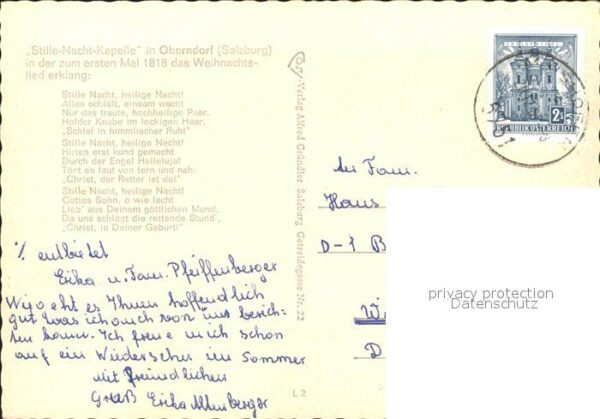 „Stille-Nacht-Kapelle" in Oberndorf (Salzburg)
in der zum ersten Mal 1818 das Weihnachts-
lied erklang:
Stille Nacht, heilige Nacht!
Alles schläft, einsam wacht
Nur das traute, hochheilige Paar.
Holder Knabe im lockigen Haar,
„Schlaf in himmlischer Ruh!"
Stille Nacht, heilige Nacht!
Hirten erst kund gemacht
Durch der Engel Halleluja!
Tönt es laut von fern und nah:
„Christ, der Retter ist da!"
Stille Nacht, heilige Nacht!
Gottes Sohn, o wie lacht
Lieb' aus Deinem göttlichen Mund,
Da uns schlägt die rettende Stund',
„Christ, in Deiner Geburt!"
entbietet
Erika u. Fam. Pfeiffenberger
Wie geht es Ihnen hoffendlich
gut was ich auch von uns berich-
ten kann. Ich freue mich schon
auf ein Wiedersehn im Sommer
Mit freundlichen
Gruß Erika
Verlag Alfred Gründler Salzburg Getreidegasse Nr. 22
L 2
REPUBLIK ÖSTERREICH
2
An Fam.
Hans
D-1 B
W
D
privacy protection
Datenschutz